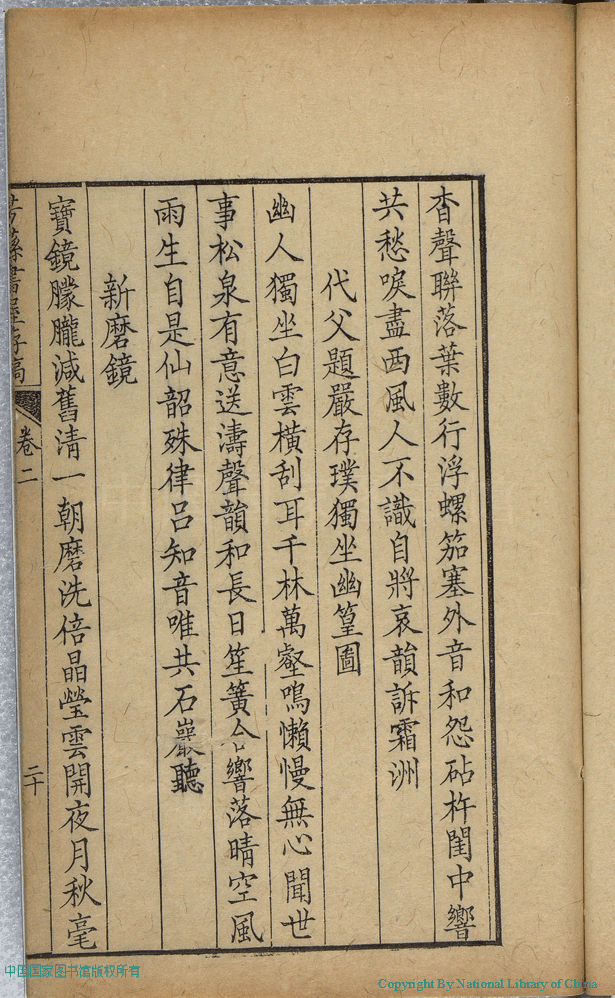 杳聲聯落葉數行浮螺笳塞外音和怨砧杵閨中響
共愁唳盡西風人不識自將哀韻訴霜洲
代父題嚴存璞獨坐幽篁圖
幽人獨坐白雲橫刮耳千林萬壑鳴懶慢無心聞世
事松泉有意送濤聲韻和長日笙簧合響落晴空風
雨生自是仙韶殊律呂知音唯共石巖聽
新磨鏡
寶鏡朦朧減舊清一朝磨洗倍晶瑩雲開夜月秋毫
書屋存稿
卷二
二十
中国国家图书馆版权所有
Copyright By National Library of China